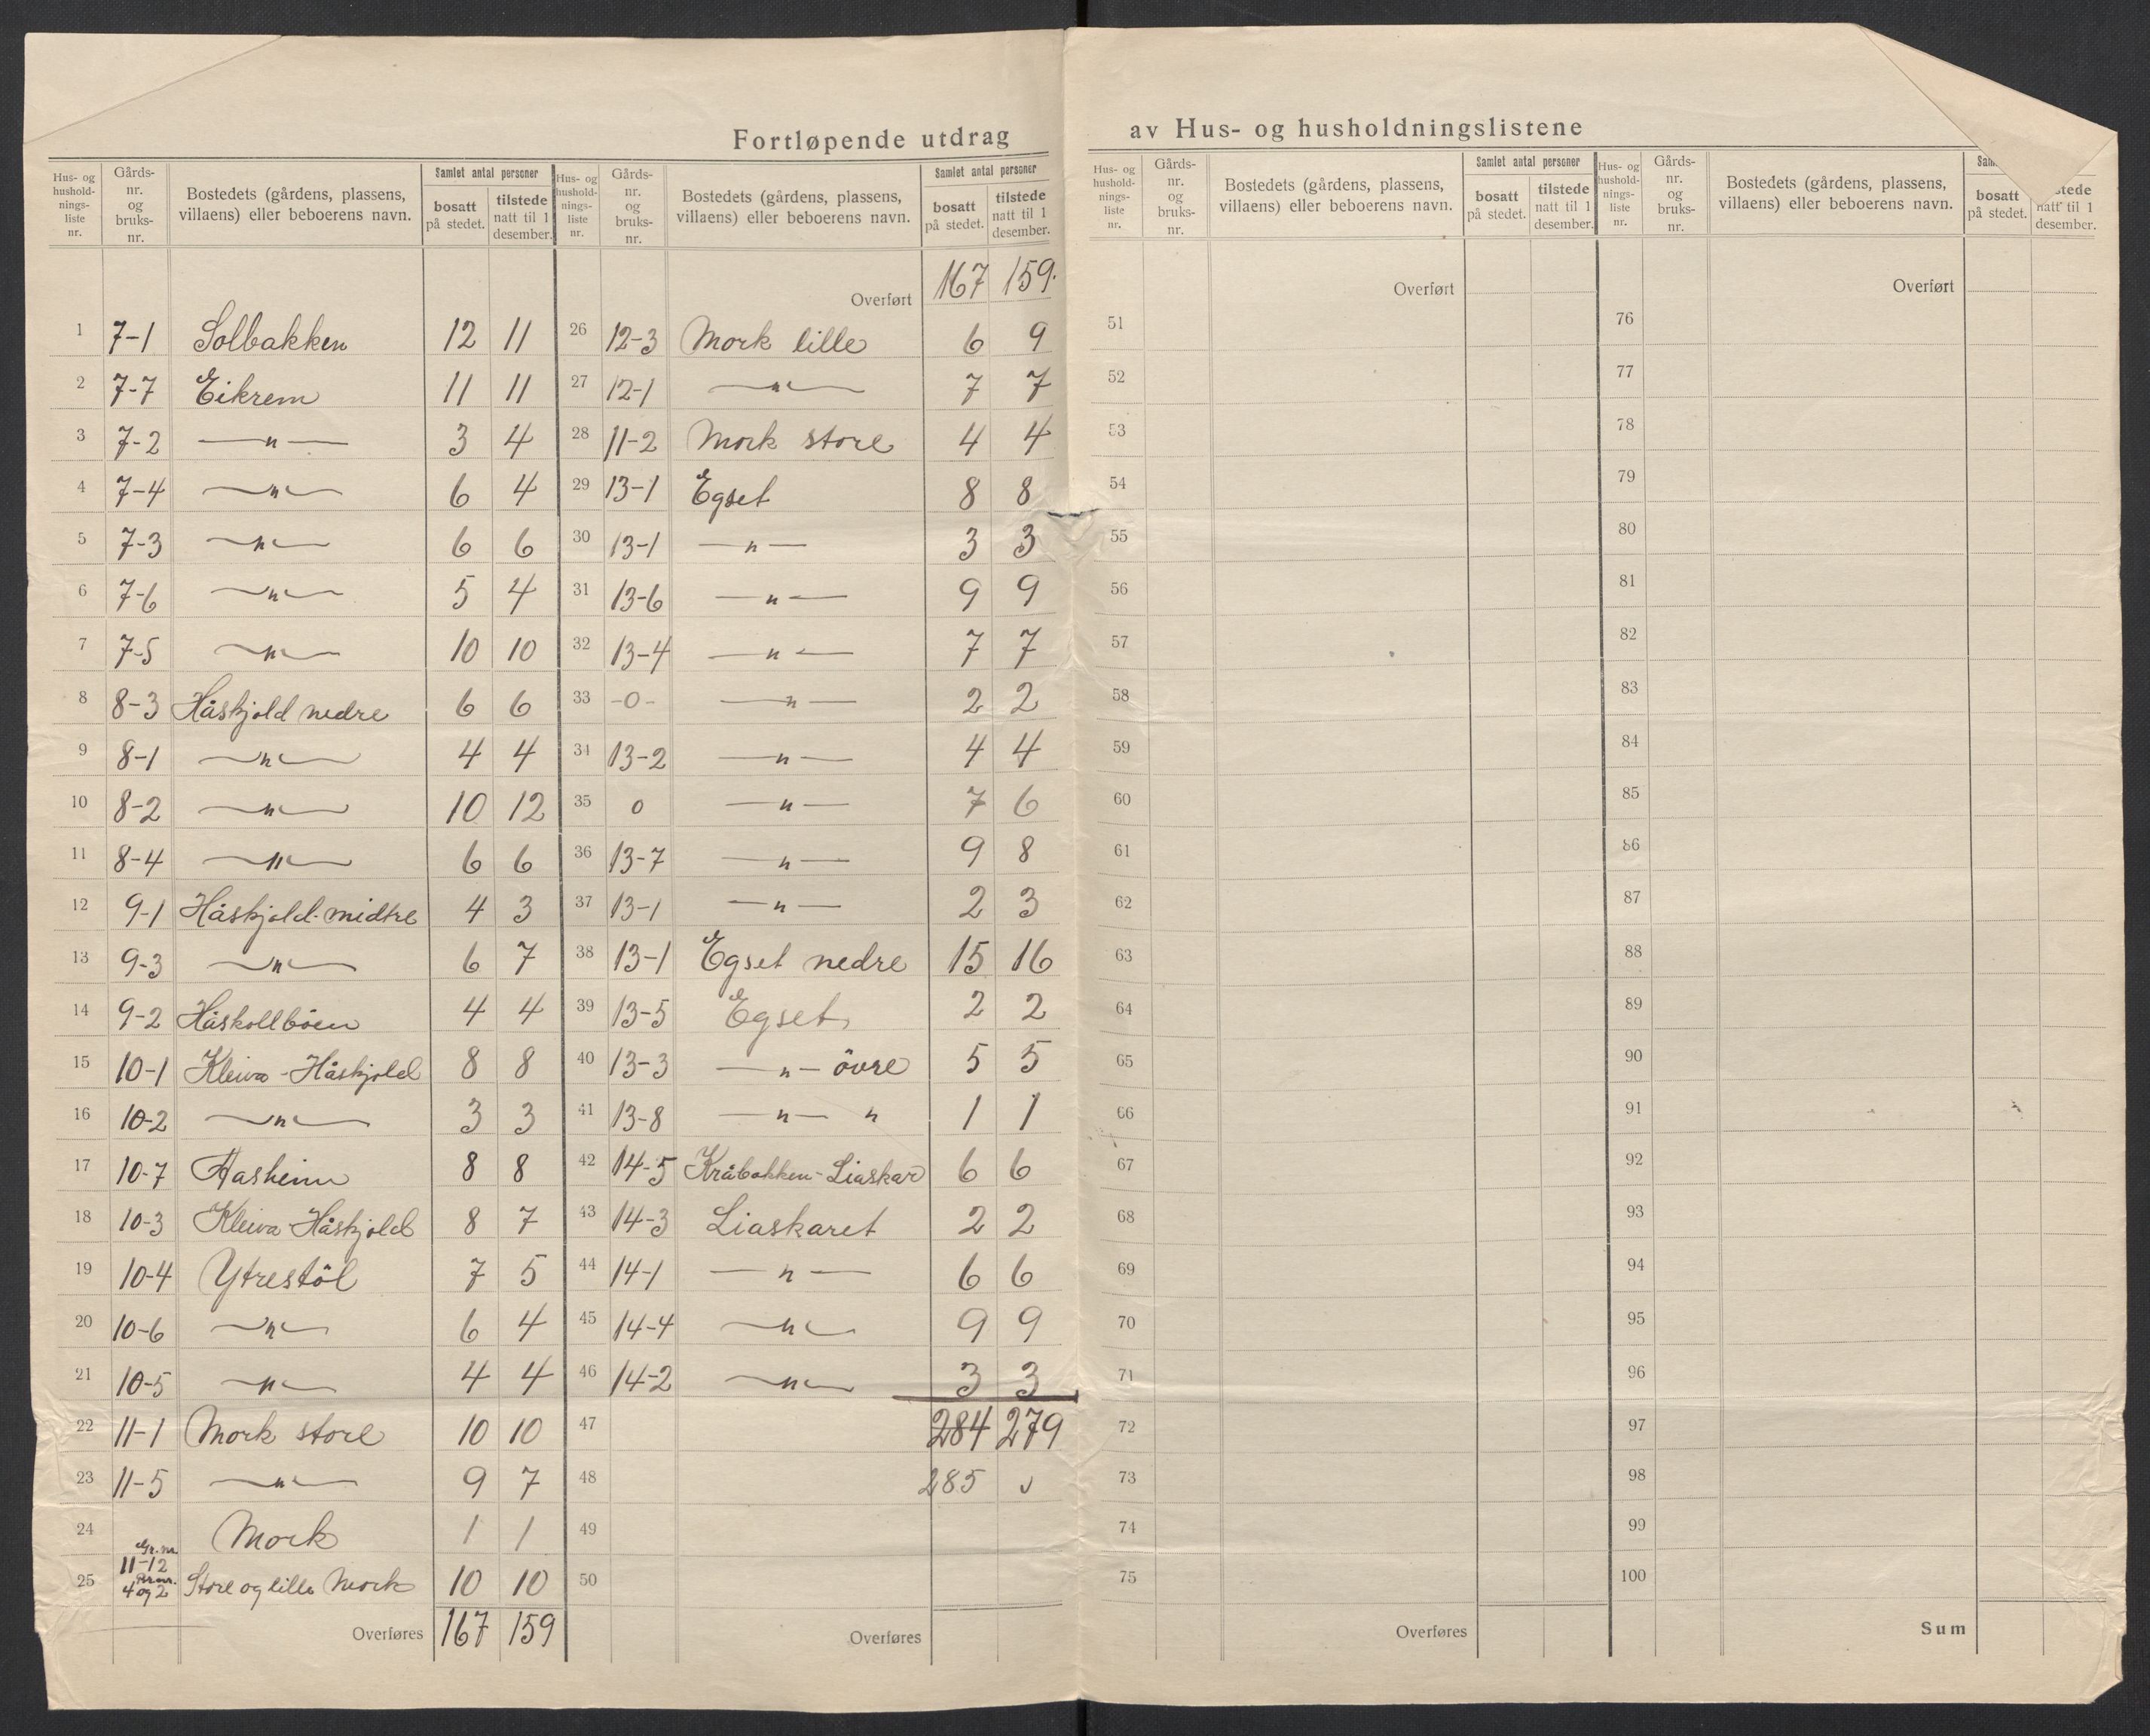 Fortløpende utdrag av Hus- og husholdningslistene
Hus- og hushold-nings-liste nr. | Gårds-nr. og bruks-nr. | Bostedets (gårdens, plassens, villaens) eller beboerens navn. | Samlet antal personer | bosatt på stedet. | tilstede natt til 1 desember.
1 7-1 Solbakken 12 11
2 7-7 Eikrem 11 11
3 7-2 —"— 3 4
4 7-4 —"— 6 4
5 7-3 —"— 6 6
6 7-6 —"— 5 4
7 7-5 —"— 10 10
8 8-3 Håskjold nedre 6 6
9 8-1 —"— 4 4
10 8-2 —"— 10 12
11 8-4 —"— 6 6
12 9-1 Håskjold-midtre 4 3
13 9-3 —"— 6 7
14 9-2 Håskollböen 4 4
15 10-1 Kleiva-Håskjold 8 8
16 10-2 —"— 3 3
17 10-7 Aasheim 8 8
18 10-3 Kleiva Håskjold 8 7
19 10-4 Ytrestöl 7 5
20 10-6 —"— 6 4
21 10-5 —"— 4 4
22 11-1 Mork store 10 10
23 11-5 —"— 9 7
24 Mork 1 1
25 Gr.nr. 11-12 Br.nr. 4 og 2 Store og lille Mork 10 10
Overføres 167 159
Hus- og hushold-nings-liste nr. | Gårds-nr. og bruks-nr. | Bostedets (gårdens, plassens, villaens) eller beboerens navn. | Samlet antal personer | bosatt på stedet. | tilstede natt til 1 desember.
Overført 167 159.
26 12-3 Mork lille 6 9
27 12-1 —"— 7 7
28 11-2 Mork store 4 4
29 13-1 Egset 8 8
30 13-1 —"— 3 3
31 13-6 —"— 9 9
32 13-4 —"— 7 7
33 -0- —"— 2 2
34 13-2 —"— 4 4
35 0 —"— 7 6
36 13-7 —"— 9 8
37 13-1 —"— 2 3
38 13-1 Egset nedre 15 16
39 13-5 Egset 2 2
40 13-3 —"— övre 5 5
41 13-8 —"— " 1 1
42 14-5 Kråbakken-Liaskar 6 6
43 14-3 Liaskaret 2 2
44 14-1 —"— 6 6
45 14-4 —"— 9 9
46 14-2 —"— 3 3
47 284 279
48 285 ✓
49
50
Overføres
Hus- og hushold-nings-liste nr. | Gårds-nr. og bruks-nr. | Bostedets (gårdens, plassens, villaens) eller beboerens navn. | Samlet antal personer | bosatt på stedet. | tilstede natt til 1 desember.
Overført
51
52
53
54
55
56
57
58
59
60
61
62
63
64
65
66
67
68
69
70
71
72
73
74
75
Overføres
Hus- og hushold-nings-liste nr. | Gårds-nr. og bruks-nr. | Bostedets (gårdens, plassens, villaens) eller beboerens navn. | bosatt på stedet. | natt til 1 desember.
Overført
76
77
78
79
80
81
82
83
84
85
86
87
88
89
90
91
92
93
94
95
96
97
98
99
100
Sum